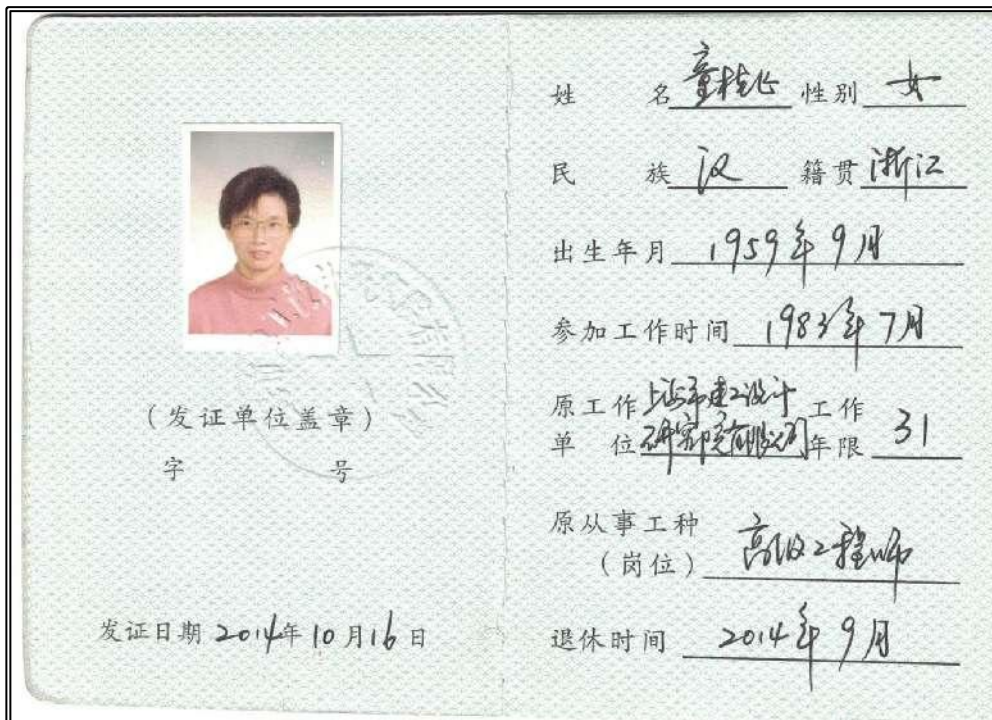 （发证单位盖章）
字 号
发证日期 2014年10月16日
姓 名 童桂 性别 女
民 族 汉 籍贯 浙江
出生年月 1959年9月
参加工作时间 1983年7月
原工作 上海市建工设计 工作
单 位 研究院有限公司 年限 31
原从事工种
（岗位） 高级工程师
退休时间 2014年9月